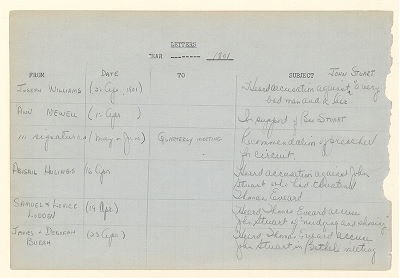 LETTERS
YEAR -------- 1801
FROM DATE TO SUBJECT JOHN STUART
JOSEPH WILLIAMS (21 Apr, 1801) Heard accusation against "a very
bad man and a liar
ANN NEWELL (15 Apr) In support of Bro STUART
111 signatures (May - June) QUARTERLY MEETING Recommendation of preacher
for circuit.
ABIGAIL 16 Apr Heard accusation against John
Stuart who had threatened
Thomas Eveard
SAMUEL & LOVICE (19 Apr.) Heard Thomas Eveard accuse
John Stuart of
JAMES + DEBORAH (23 Apr.) Heard Thomas Eveard accuse
John Stuart in Bethel meeting